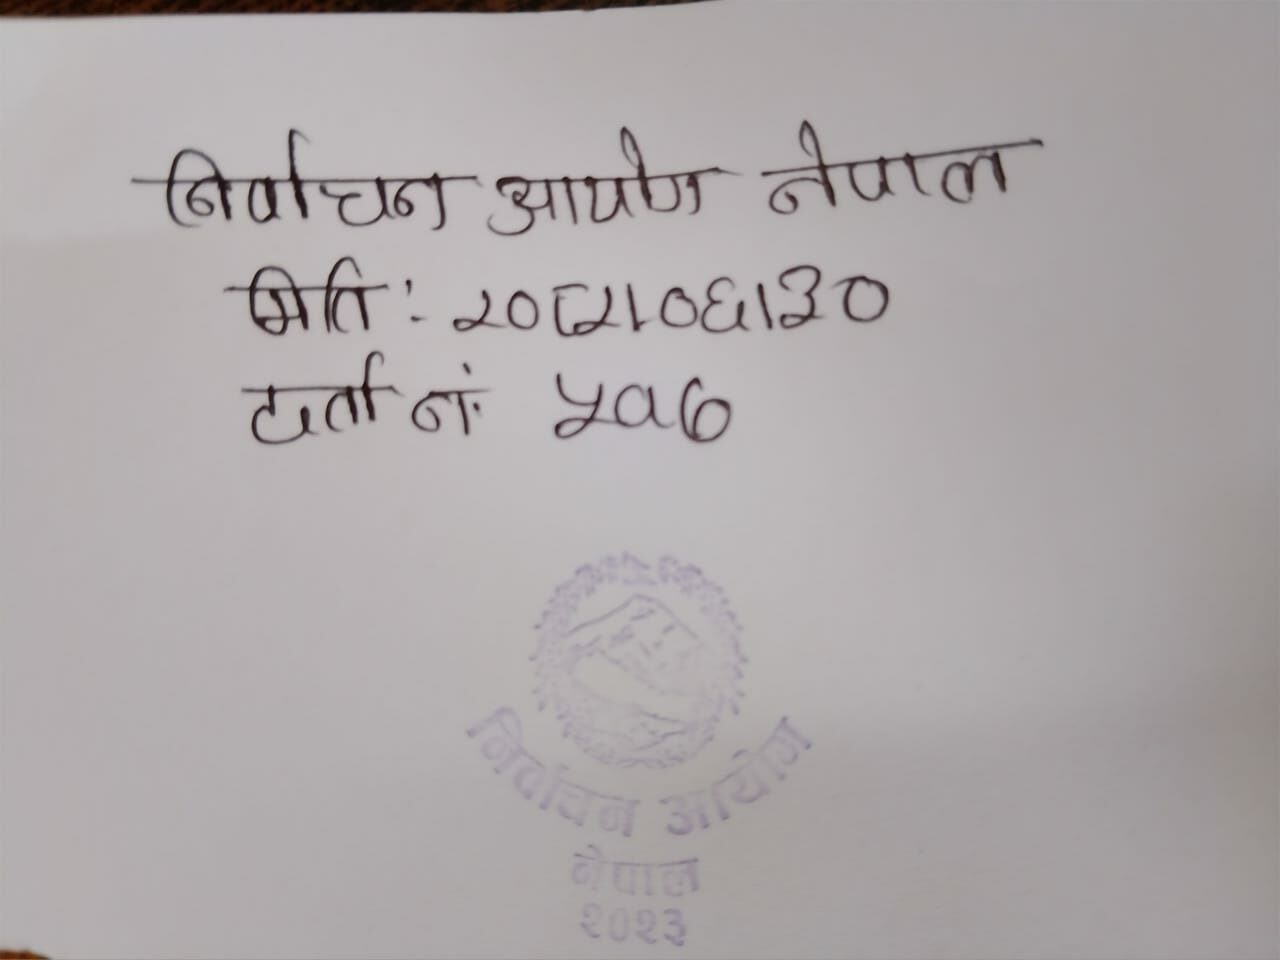 निर्वाचन आयोग नेपाल
मिति: २०८२।०६।३०
दर्ता नं. ५१७
निर्वाचन आयोग
नेपाल
२०२३